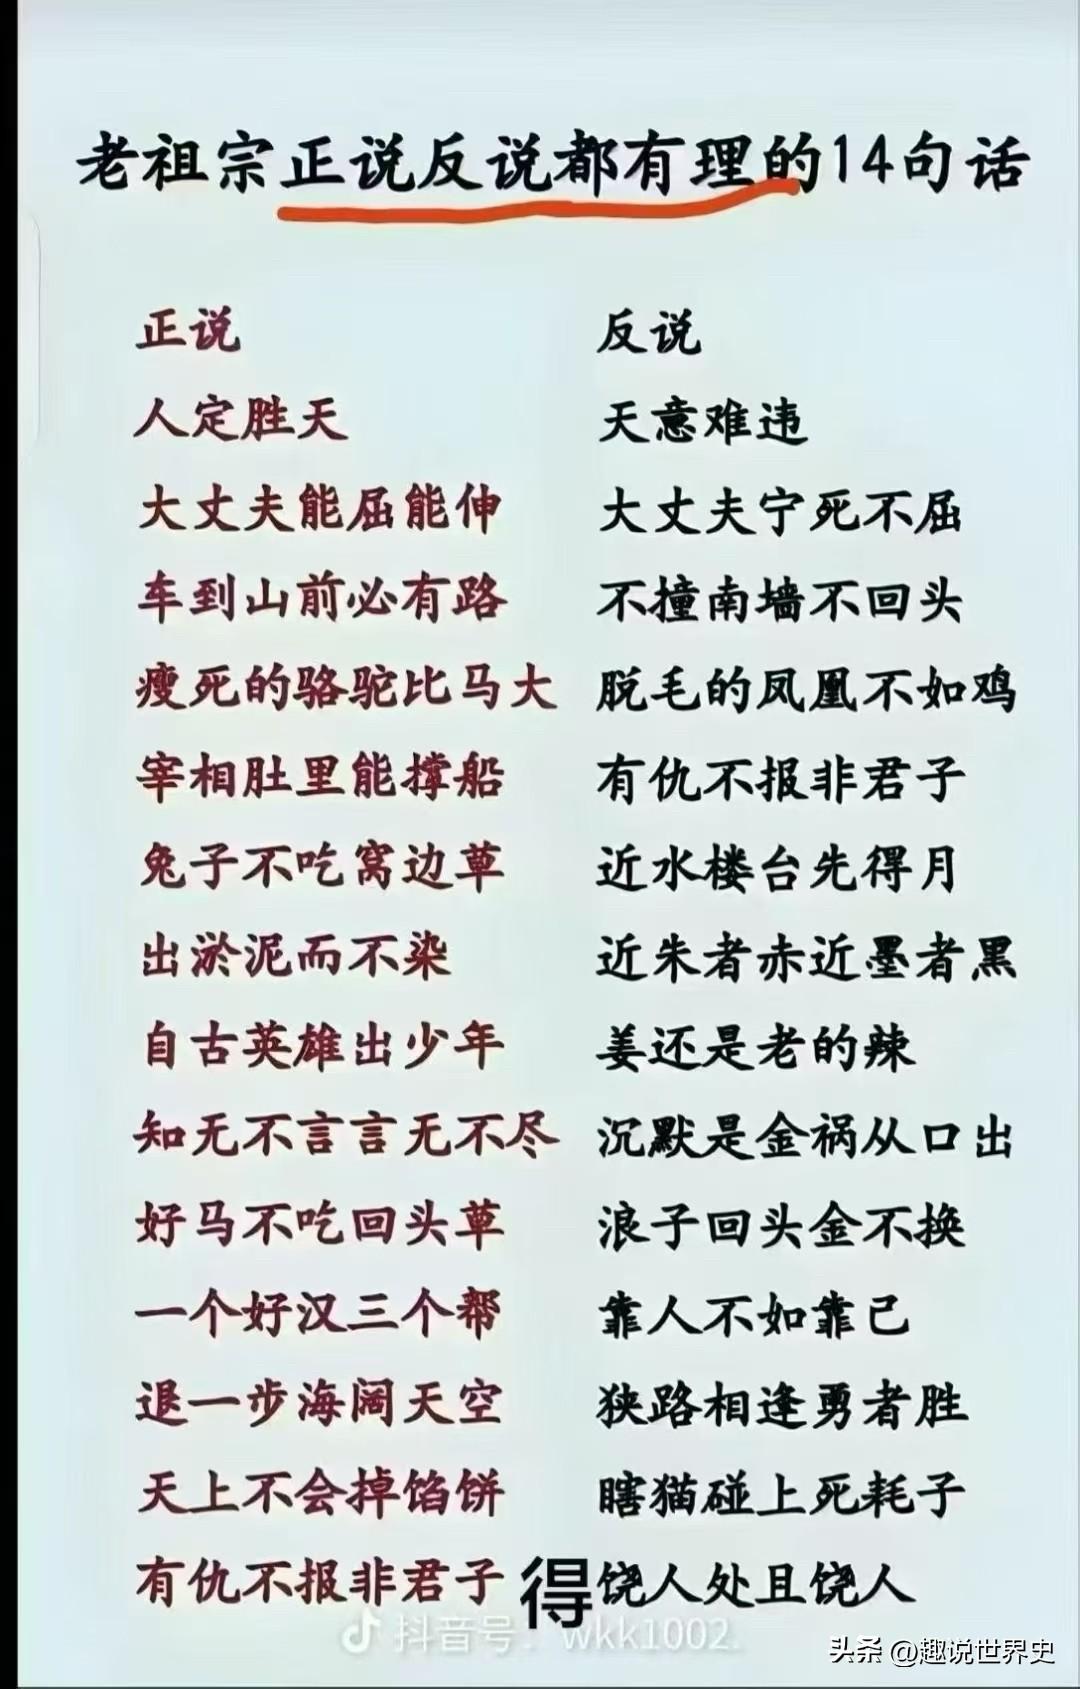 老祖宗正说反说都有理的14句话
正说 反说
人定胜天 天意难违
大丈夫能屈能伸 大丈夫宁死不屈
车到山前必有路 不撞南墙不回头
瘦死的骆驼比马大 脱毛的凤凰不如鸡
宰相肚里能撑船 有仇不报非君子
兔子不吃窝边草 近水楼台先得月
出淤泥而不染 近朱者赤近墨者黑
自古英雄出少年 姜还是老的辣
知无不言言无不尽 沉默是金祸从口出
好马不吃回头草 浪子回头金不换
一个好汉三个帮 靠人不如靠己
退一步海阔天空 狭路相逢勇者胜
天上不会掉馅饼 瞎猫碰上死耗子
有仇不报非君子 得饶人处且饶人
抖音号：wkk1002.
头条 @趣说世界史